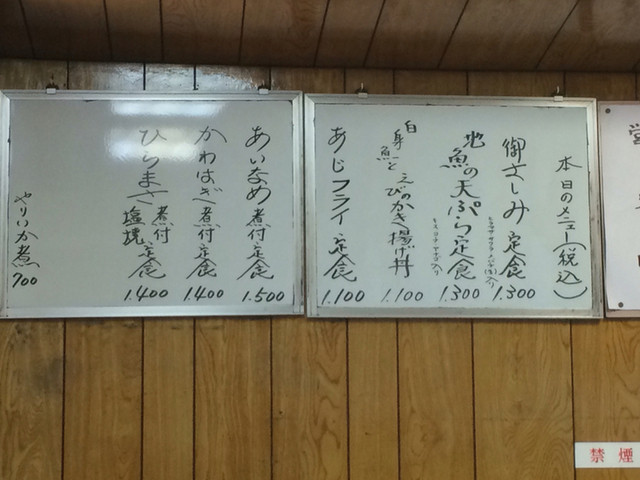 本日のメニュー(税込)
御さしみ定食 1.300
地魚の天ぷら定食 1.300
白身魚とえびのかき揚げ丼 1.100
あじフライ定食 1.100
あいなめ煮付定食 1.500
かわはぎ煮付定食 1.400
ひらまさ煮付塩焼定食 1.400
やりいか煮 700
営
禁煙